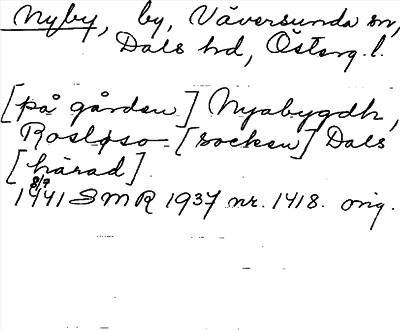 Nyby, by, Väversunda sn,
Dals hd, Österg. l.
[på gården] Nyabygdh,
Rosløso - [socken] Dals
[härad].
8/9
1441 SMR 1937 nr. 1418. orig.